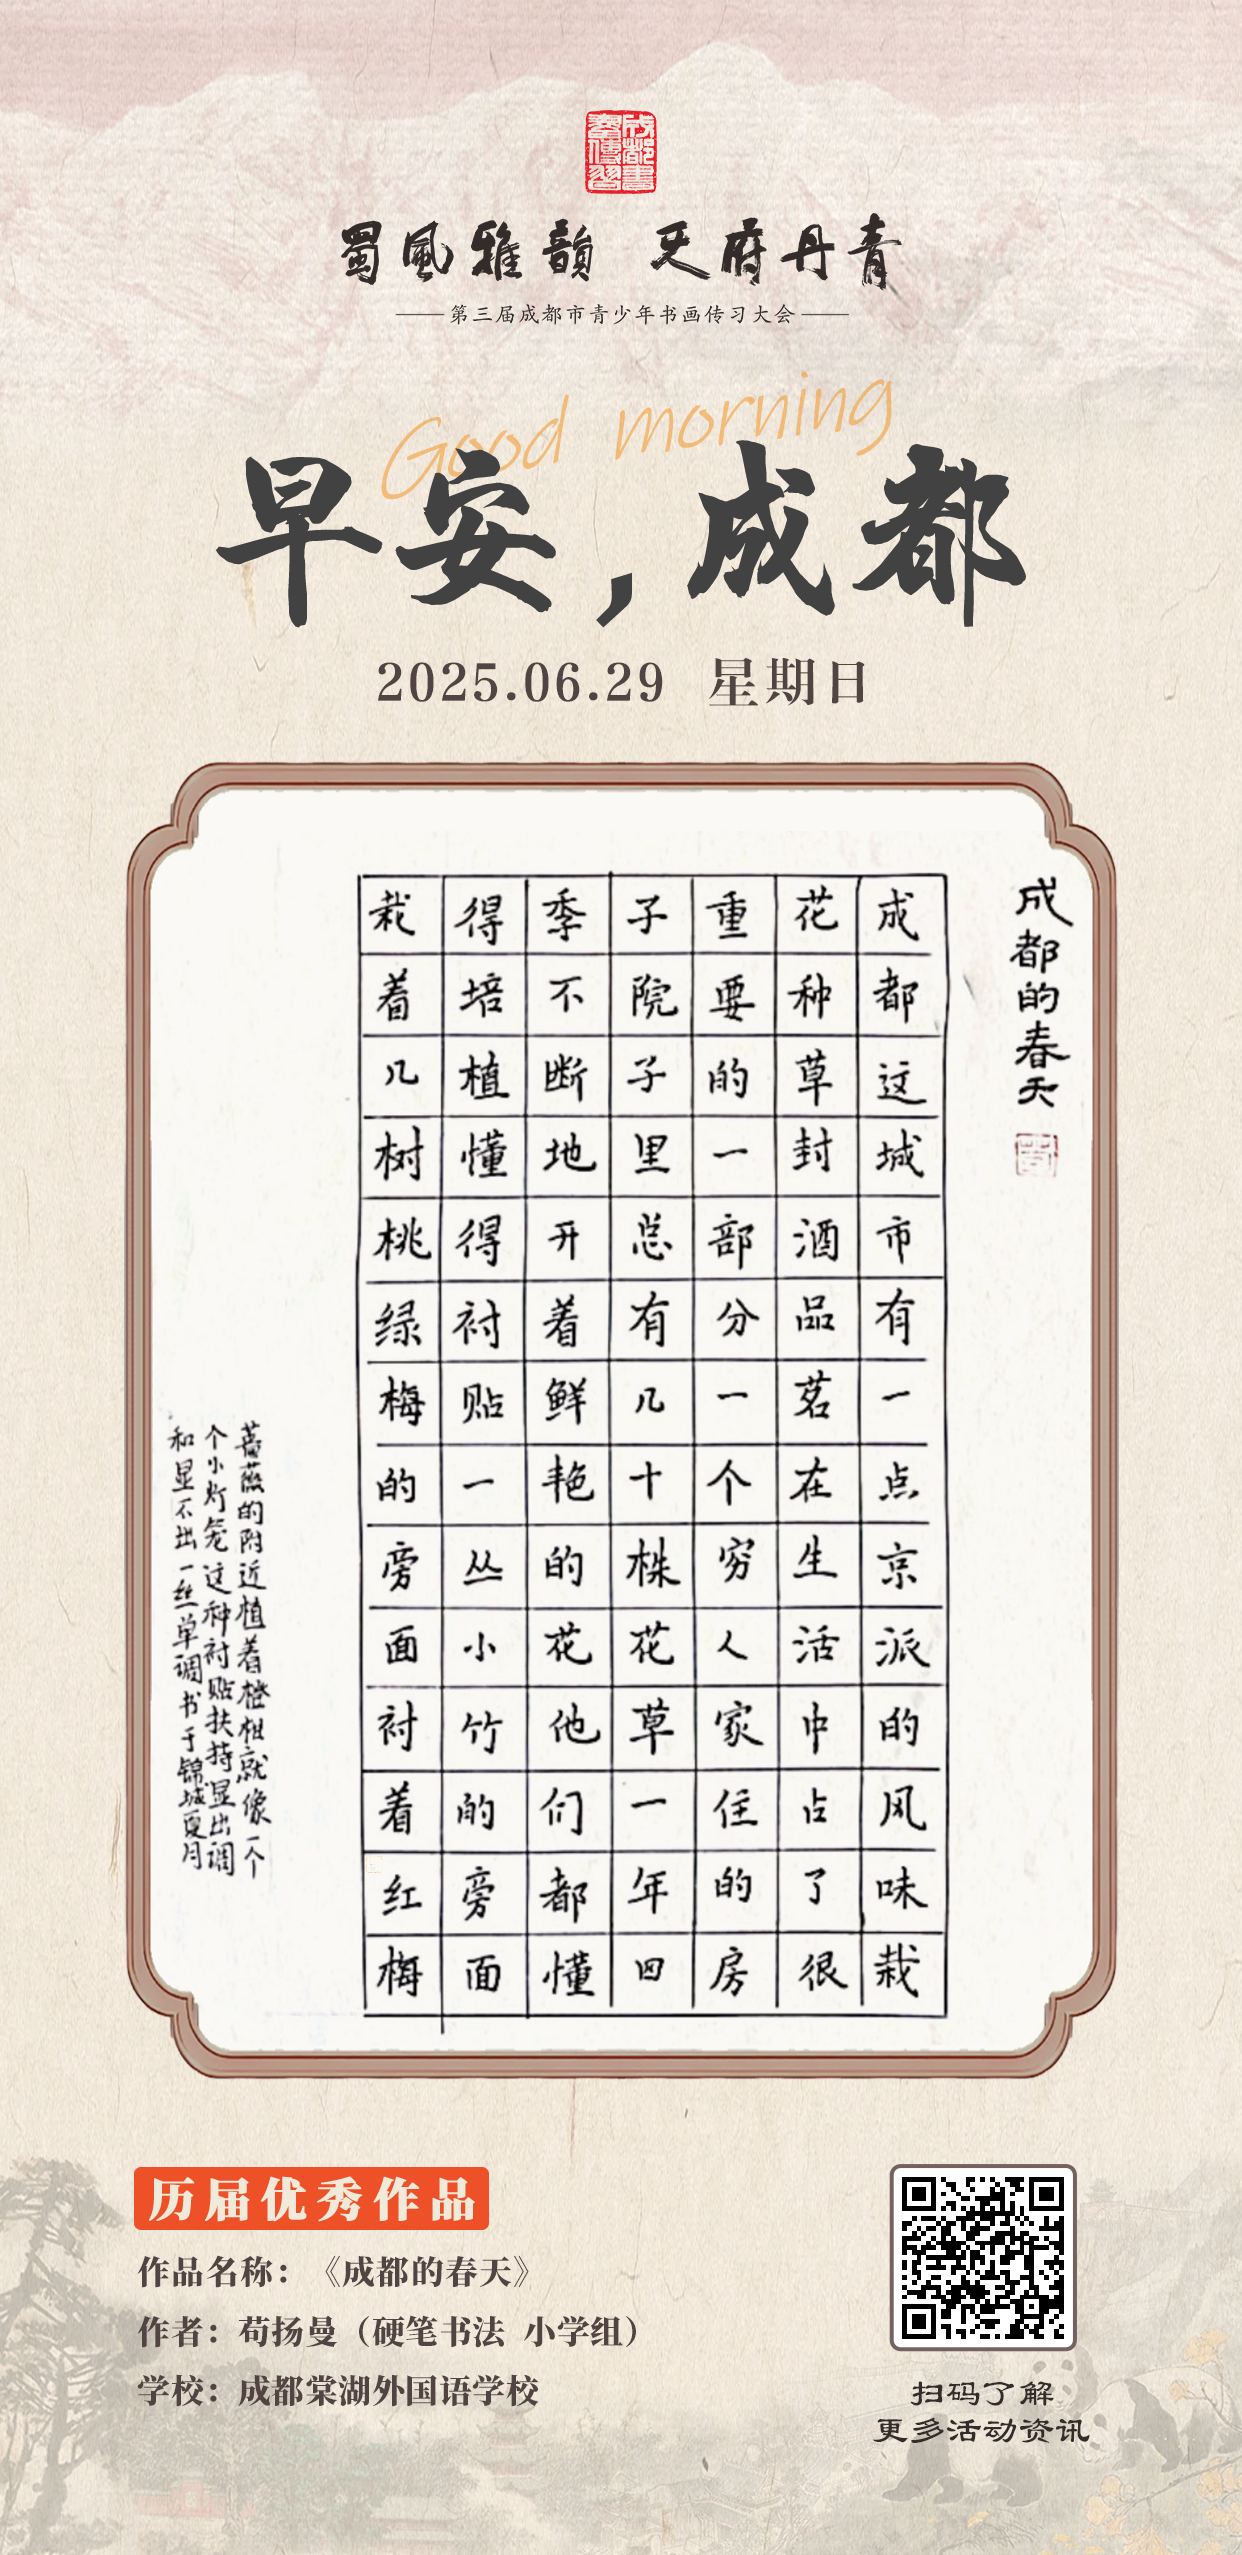 成都書
畫傳習
蜀風雅韻 天府丹青
第三届成都市青少年书画传习大会
Good morning
早安，成都
2025.06.29 星期日
成都的春天
成都这城市有一点京派的风味栽
花种草封酒品茗在生活中占了很
重要的一部分一个穷人家住的房
子院子里总有几十株花草一年四
季不断地开着鲜艳的花他们都懂
得培植懂得衬贴一丛小竹的旁面
栽着几树桃绿梅的旁面衬着红梅
蔷薇的附近植着橙柑就像一个
个小灯笼这种衬贴扶持显出调
和显不出一丝单调书于锦城夏月
历届优秀作品
作品名称：《成都的春天》
作者：苟扬曼（硬笔书法 小学组）
学校：成都棠湖外国语学校
扫码了解
更多活动资讯